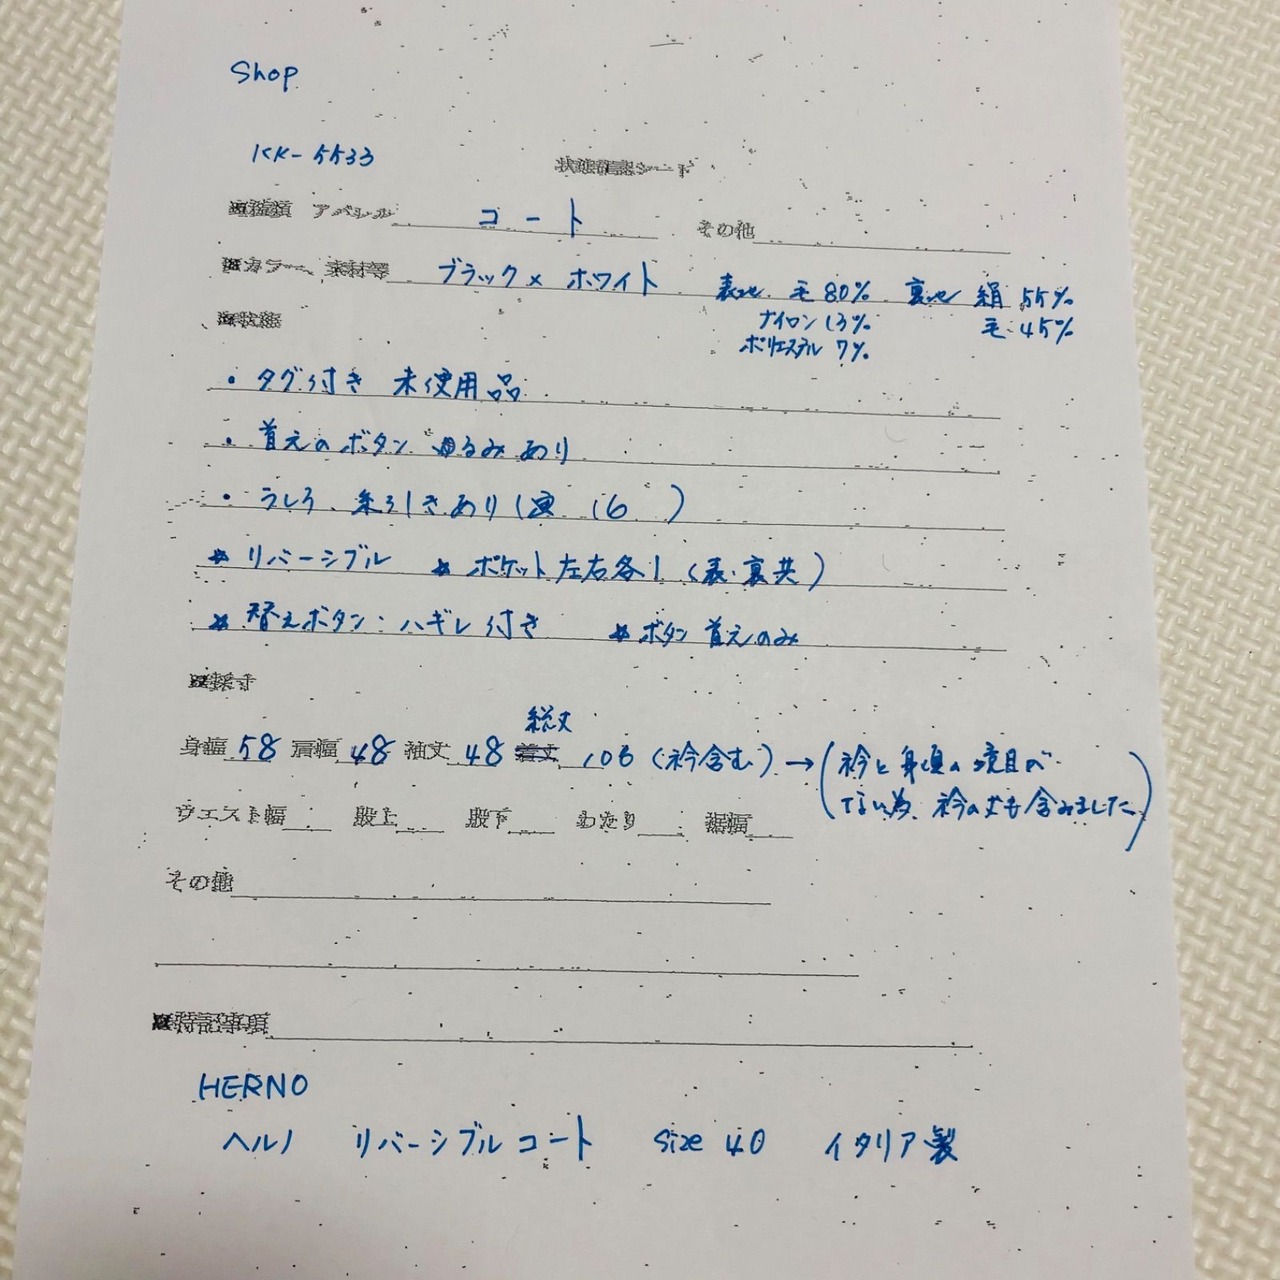 Shop
KK-5533
状態確認シート
※種類 アパレル コート その他
※カラー、素材等 ブラック×ホワイト 表地 毛80% 裏地 絹55%
ナイロン13% 毛45%
ポリエステル7%
※状態
・タグ付き 未使用品
・首元のボタン ゆるみあり
・うしろ、糸引きあり(画 16 )
★リバーシブル ★ポケット左右各1(表・裏共)
★替えボタン・ハギレ付き ★ボタン首元のみ
※採寸
総丈
身幅58 肩幅48 袖丈48 着丈 106(衿含む)→(衿と身頃の境目が
ウエスト幅 股上 股下 わたり 裾幅 ない為、衿の丈も含みました。)
その他
※特記事項
HERNO
ヘルノ リバーシブルコート size 40 イタリア製